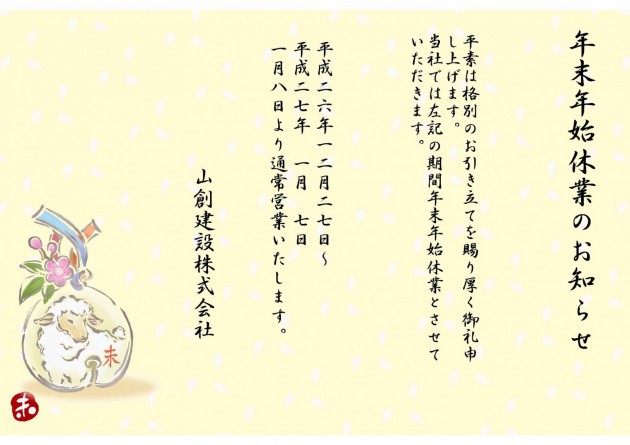 年末年始休業のお知らせ
平素は格別のお引き立てを賜り厚く御礼申
し上げます。
当社では左記の期間年末年始休業とさせて
いただきます。
平成二六年一二月二七日～
平成二七年　一月　七日
一月八日より通常営業いたします。
山創建設株式会社
未
未